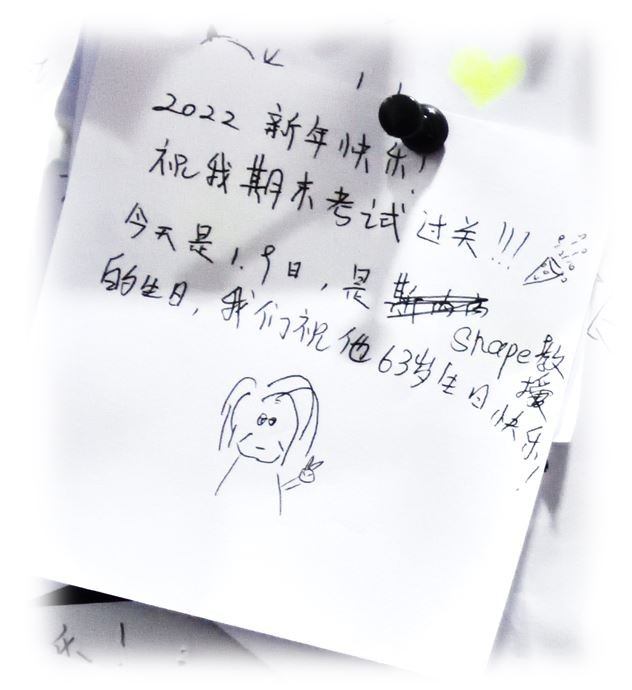 2022 新年快乐!
祝我期末考试过关!!!
今天是1.9日,是 Shape教授
的生日,我们祝他63岁生日快乐!
乐!